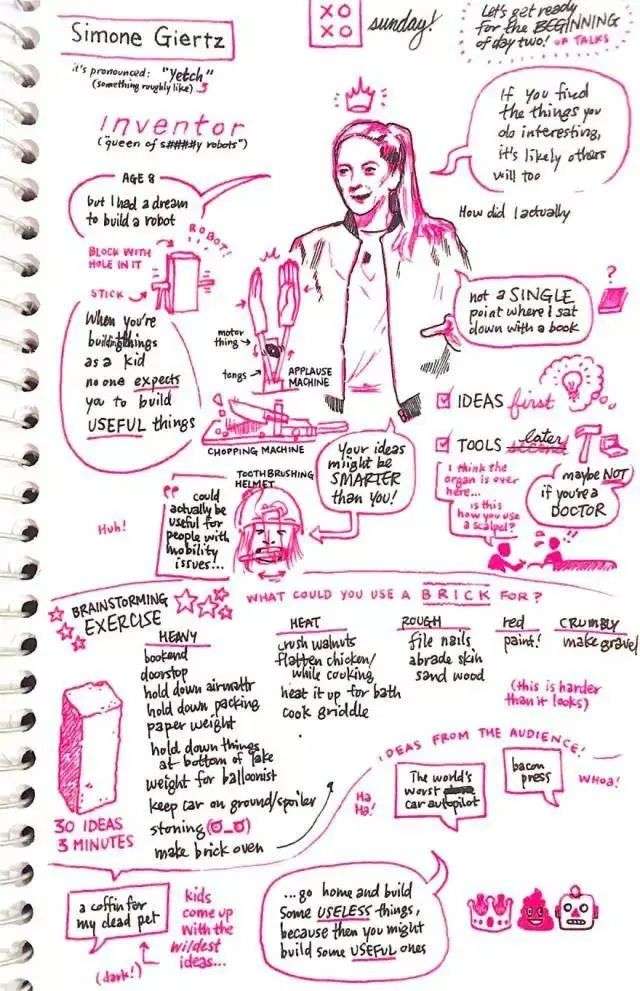 Simone Giertz
it's pronounced: "Yetch"
(something roughly like)
XO
XO
sunday!
Let's get ready
for the BEGINNING
of day two! OF TALKS
inventor
("queen of s####y robots")
If you find
the things you
do interesting,
it's likely others
will too
AGE 8
but I had a dream
to build a robot
How did I actually
ROBOT!
BLOCK WITH
HOLE IN IT
STICK
not a SINGLE
point where I sat
down with a book
?
When you're
building things
as a kid
no one expects
you to build
USEFUL things
motor
thing
tongs
APPLAUSE
MACHINE
CHOPPING MACHINE
IDEAS first
TOOLS second later
Your ideas
might be
SMARTER
than You!
I think the
organ is over
here...
is this
how you use
a scalpel?
maybe NOT
if you're a
DOCTOR
TOOTHBRUSHING
HELMET
Huh!
"could
actually be
useful for
people with
mobility
issues...
BRAINSTORMING
EXERCISE
WHAT COULD YOU USE A BRICK FOR?
HEAVY
bookend
doorstop
hold down airmattr
hold down packing
paper weight
hold down things
at bottom of lake
weight for balloonist
keep car on ground/spoiler
stoning (ಠ_ಠ)
make brick oven
HEAT
crush walnuts
flatten chicken/
while cooking
heat it up for bath
cook griddle
ROUGH
file nails
abrade skin
sand wood
red
paint!
CRUMBLY
make gravel
(this is harder
than it looks)
30 IDEAS
3 MINUTES
IDEAS FROM THE AUDIENCE!
Ha
Ha!
The world's
worst
car autopilot
bacon
press
WHOA!
a coffin for
my dead pet
(dark!)
kids
come up
with the
wildest
ideas...
...go home and build
some USELESS things,
because then you might
build some USEFUL ones